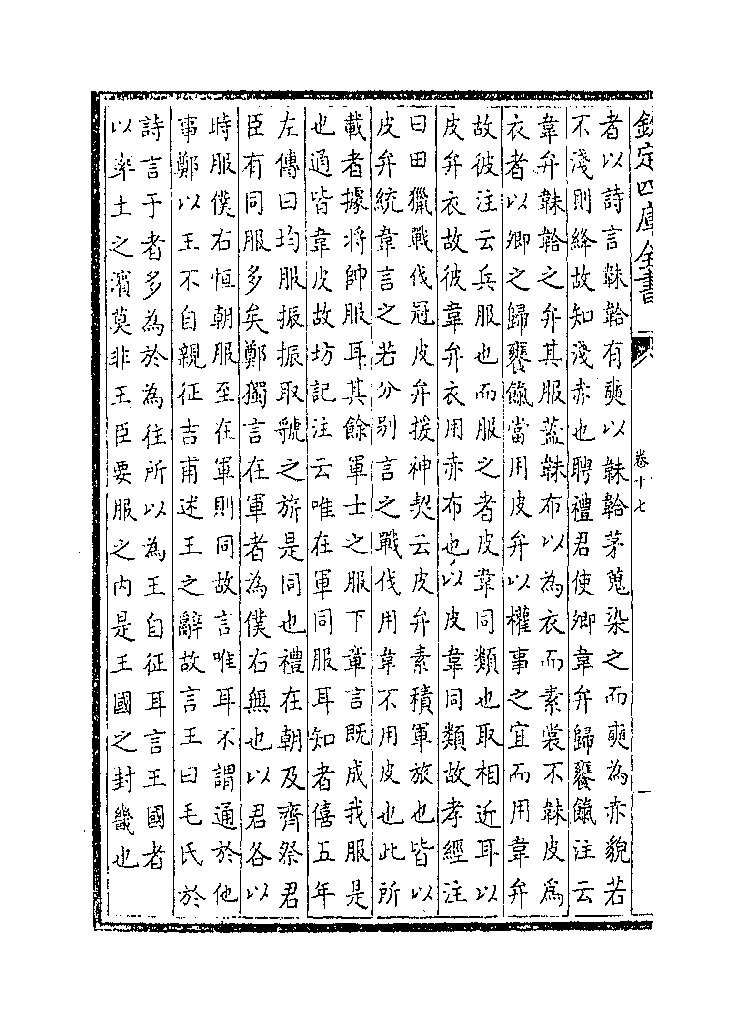 欽定四庫全書
卷十七
者以詩言韎韐有奭以韎韐茅蒐染之而奭為赤貌若
不淺則絳故知淺赤也聘禮君使卿韋弁歸饔餼注云
韋弁韎韐之弁其服蓋韎布以為衣而素裳不韎皮為
衣者以卿之歸饔餼當用皮弁以權事之宜而用韋弁
故彼注云兵服也而服之者皮韋同類也取相近耳以
皮弁衣故彼韋弁衣用赤布也以皮韋同類故孝經注
曰田獵戰伐冠皮弁援神契云皮弁素積軍旅也皆以
皮弁統韋言之若分别言之戰伐用韋不用皮也此所
載者據將帥服耳其餘軍士之服下章言既成我服是
也通皆韋皮故坊記注云唯在軍同服耳知者僖五年
左傳曰均服振振取虢之旂是同也禮在朝及齊祭君
臣有同服多矣鄭獨言在軍者為僕右無也以君各以
時服僕右恒朝服至在軍則同故言唯耳不謂通於他
事鄭以王不自親征吉甫述王之辭故言王曰毛氏於
詩言于者多為於為往所以為王自征耳言王國者
以率土之濱莫非王臣要服之内是王國之封畿也